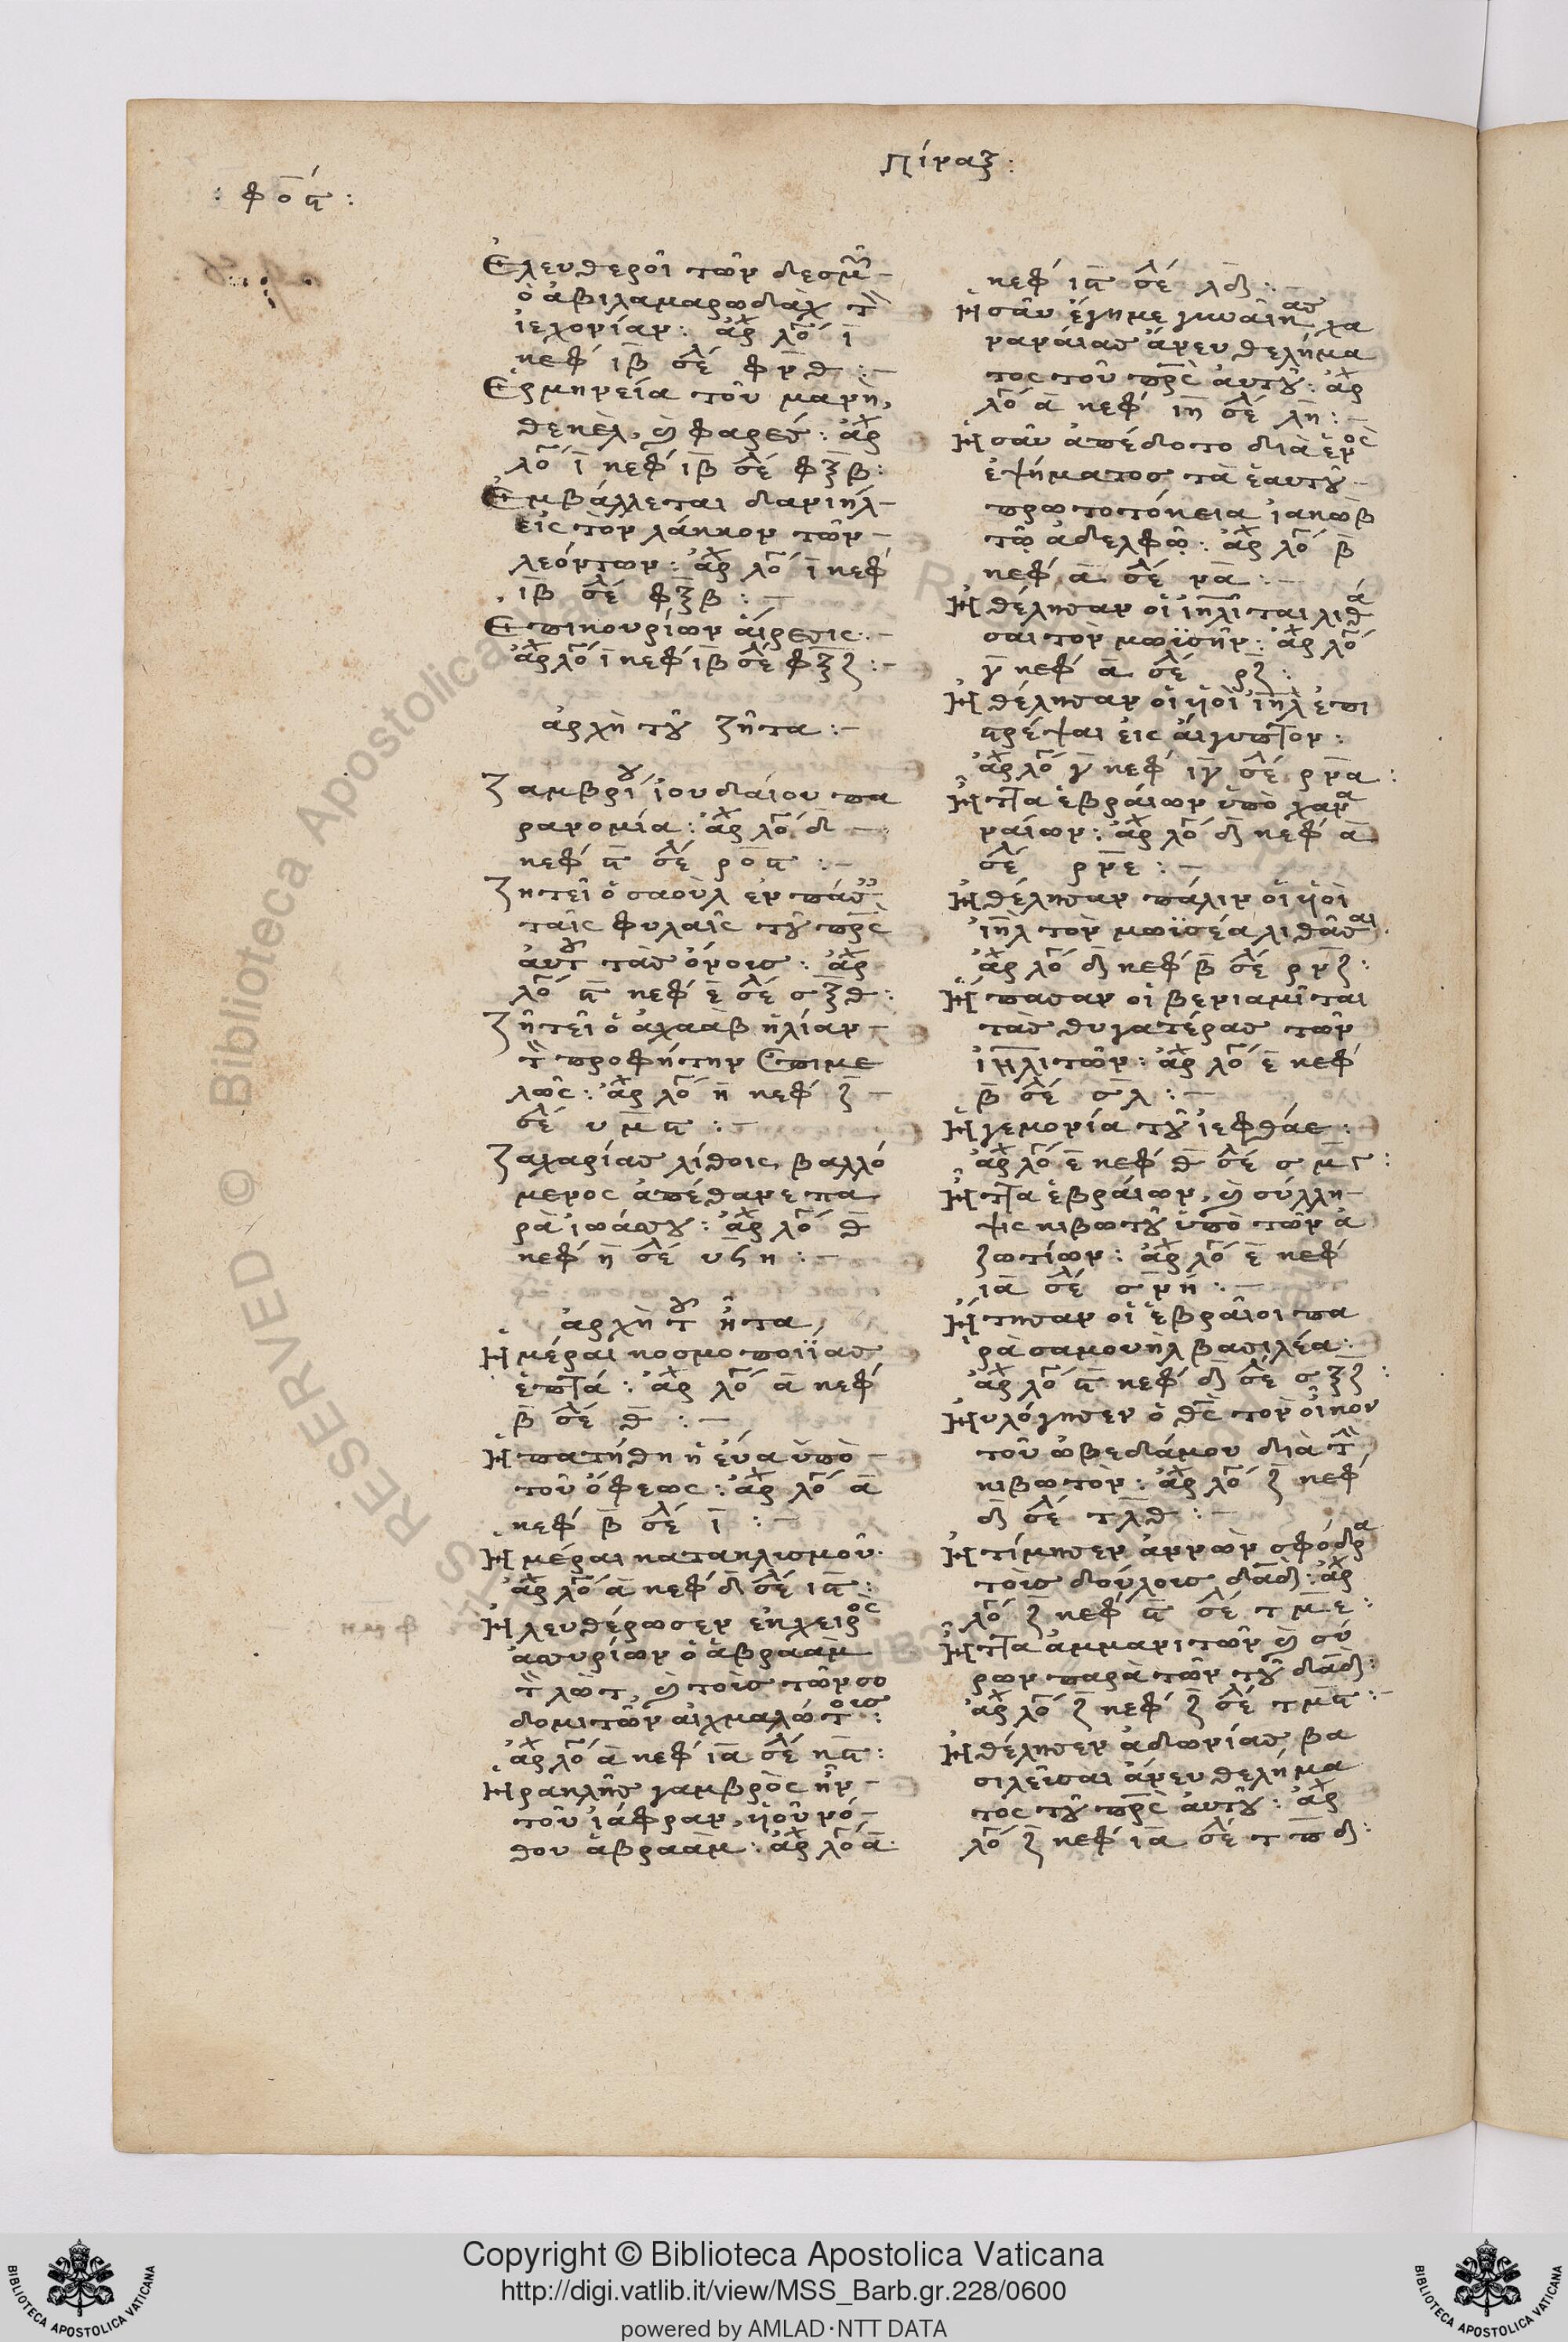 Πίναξ:
: φοϛ :
Ἐλευθεροῖ τῶν δεσμῶν
ὁ ἀβιλαμαρωδὰχ τὸν
ἰεχονίαν: ἀρχ λό ι
κεφ ιβ σελ φνθ :-
Ἑρμηνεία τοῦ μανὴ,
θεκὲλ, καὶ φαρές: ἀρχ
λό ι κεφ ιβ σελ φξβ:
Ἐμβάλλεται δανιὴλ
εἰς τὸν λάκκον τῶν
λεόντων: ἀρχ λό ι κεφ
ιβ σελ φξβ :-
Ἐπικουρίων αἵρεσις:-
ἀρχ λό ι κεφ ιβ σελ φξζ :-
ἀρχὴ τοῦ ζῆτα :-
Ζαμβρί τοῦ ἰουδαίου πα
ρανομία: ἀρχ λό δ
κεφ ϛ σελ ροϛ :-
Ζητεῖ ὁ σαοὺλ ἐν πάσαις
ταῖς φυλαῖς τοῦ πρς
αὐτοῦ τὰς ὄνοις: ἀρχ
λό ϛ κεφ ε σελ σξθ:
Ζητεῖ ὁ ἀχαὰβ ἠλίαν
τὸν προφήτην ἐπιμε
λῶς: ἀρχ λό η κεφ ζ
σελ υμϛ :-
Ζαχαρίας λίθοις βαλλό
μενος ἀπέθανε πα
ρὰ ἰωάσου: ἀρχ λό θ
κεφ η σελ υϟη :-
ἀρχὴ τοῦ ἦτα
Ἡμέραι κοσμοποιΐας
ἑπτά: ἀρχ λό α κεφ
β σελ θ :-
Ἠπατήθη ἡ εὔα ὑπὸ
τοῦ ὄφεως: ἀρχ λό α
κεφ β σελ ι :-
Ἡμέραι κατακλισμοῦ.
ἀρχ λό α κεφ δ σελ ιϛ:
Ἠλευθέρωσεν ἐκ χειρὸς
ἀσυρίων ὁ ἀβραὰμ
τὸν λὼτ, καὶ τοὶς τῶν σο
δομιτῶν αἰχμαλώτοις:
ἀρχ λό α κεφ ια σελ κϛ:
Ἡρακλῆς γαμβρὸς ἦν
τοῦ ἰάφραν, ὑιοῦ νό
θου ἀβραάμ: ἀρχ λό α
κεφ ιϛ σελ λδ :-
Ἠσαῦ ἔγημε γυναῖκας χα
ναναίας ἄνευ θελήμα
τος τοῦ πρς αὐτοῦ: ἀρχ
λό α κεφ ιη σελ λη :-
Ἠσαῦ ἀπέδοτο διὰ ἑνὸς
ἑψήματος τὰ ἑαυτοῦ
πρωτοτόκεια ἰακὼβ
τῷ ἀδελφῷ: ἀρχ λό β
κεφ α σελ να :-
Ἠθέλησαν οἱ ἰηλῖται λιθά
σαι τὸν μωϋσῆν: ἀρχ λό
γ κεφ α σελ ρζ:
Ἠθέλησαν οἱ ὑιοὶ ἰηλ ἐπι
στρέψαι εἰς ἄιγυπτον:
ἀρχ λό γ κεφ ιγ σελ ρνα:
Ἧττα ἑβραίων ὑπὸ χανα
ναίων: ἀρχ λό δ κεφ α
σελ ρνε :-
Ἠθέλησαν πάλιν οἱ ὑιοὶ
ἰηλ τὸν μωϋσέα λιθάσαι
ἀρχ λό δ κεφ β σελ ρνζ:
Ἥπασαν οἱ βενιαμῖται
τὰς θυγατέρας τῶν
ἰηλιτῶν: ἀρχ λό ε κεφ
β σελ σλ :-
Ἡγεμονία τοῦ ἰεφθάε:
ἀρχ λό ε κεφ θ σελ σμϛ:
Ἧττα ἑβραίων, καὶ σύλλη
ψις κιβωτοῦ ὑπὸ τῶν ἀ
ζωτίων: ἀρχ λό ε κεφ
ια σελ σνη :-
Ἤτησαν οἱ ἑβραῖοι πα
ρὰ σαμουὴλ βασιλέα:
ἀρχ λό ϛ κεφ δ σελ σξζ:
Ηὐλόγησεν ὁ θς τὸν οἶκον
τοῦ ὠβεδάμου διὰ τὴν
κιβωτόν: ἀρχ λό ζ κεφ
δ σελ τλθ :-
Ἠτίμησεν ἀννὼν σφόδρα
τοὶς δούλοις δαδ: ἀρχ
λό ζ κεφ ϛ σελ τμε:
Ἧττα ἀμμανιτῶν καὶ σύ
ρων παρὰ τῶν τοῦ δαδ:
ἀρχ λό ζ κεφ ζ σελ τμϛ:-
Ἠθέλησεν ἀδωνίας βα
σιλεῦσαι ἄνευ θελήμα
τος τοῦ πρς αὐτοῦ: ἀρχ
λό ζ κεφ ια σελ τπδ:
RESERVED © Biblioteca Apostolica Vaticana
Copyright © Biblioteca Apostolica Vaticana
http://digi.vatlib.it/view/MSS_Barb.gr.228/0600
powered by AMLAD·NTT DATA
BIBLIOTECA APOSTOLICA VATICANA
BIBLIOTECA APOSTOLICA VATICANA